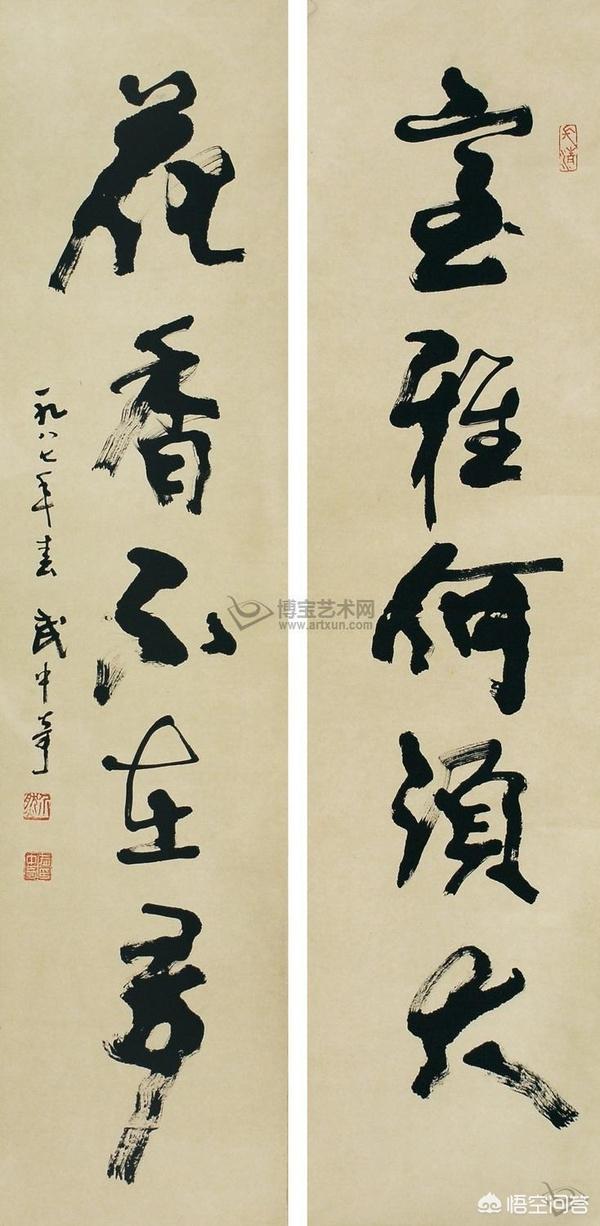 室雅何須大
花香不在多
一九八七年春 武中奇
博宝艺术网
www.artxun.com
悟空问答